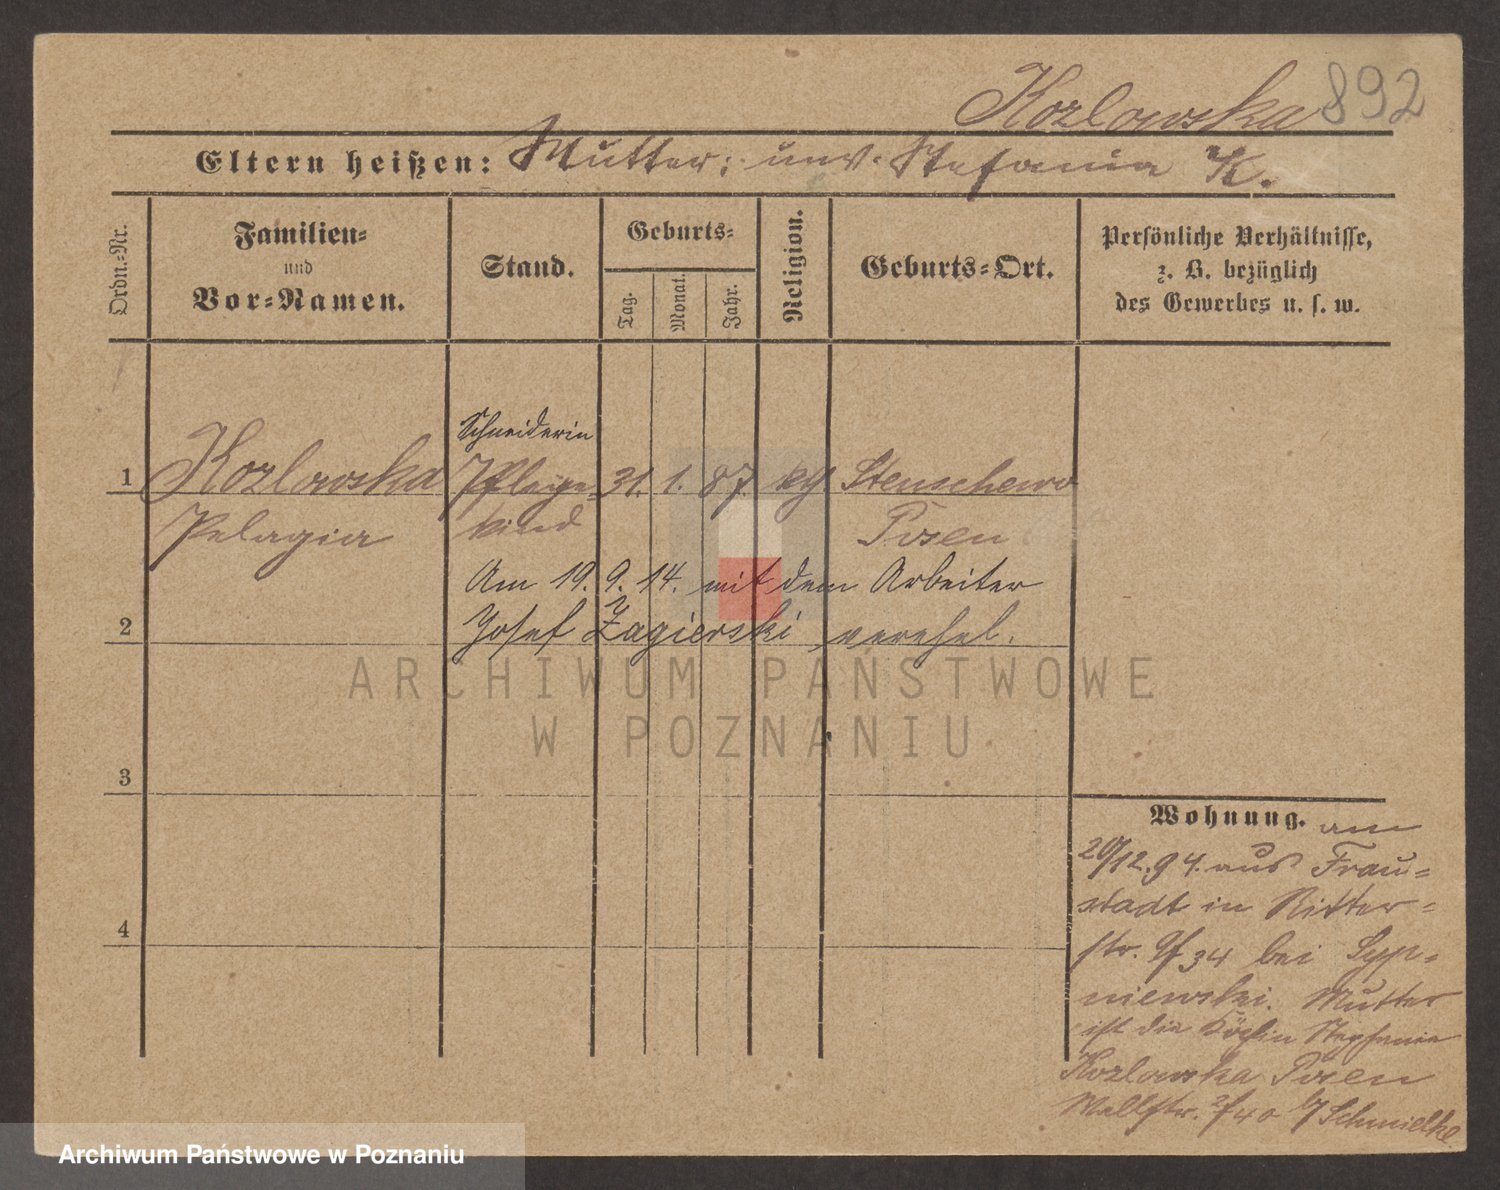 Kozlowska 892
Eltern heißen: Mutter: unv. Stefania K.
Ordn.-Nr.
Familien-
und
Vor-Namen.
Stand.
Geburts-
Tag.
Monat.
Jahr.
Religion.
Geburts-Ort.
Persönliche Verhältnisse,
z. B. bezüglich
des Gewerbes u. s. w.
Schneiderin
1 Kozlowska Pflege- 31. 1. 87. kth Stenschewo
Pelagia kind Posen
Am 19. 9. 14. mit dem Arbeiter
2 Josef Zagierski verehel.
3
4
Wohnung. am
20/12.94. aus Frau-
stadt in Ritter-
str. 34 bei Syp-
niewski. Mutter
ist die Köchin Stephania
Kozlowska Posen
Wallstr. 40 b/ Schmielke
ARCHIWUM PAŃSTWOWE
W POZNANIU
Archiwum Państwowe w Poznaniu